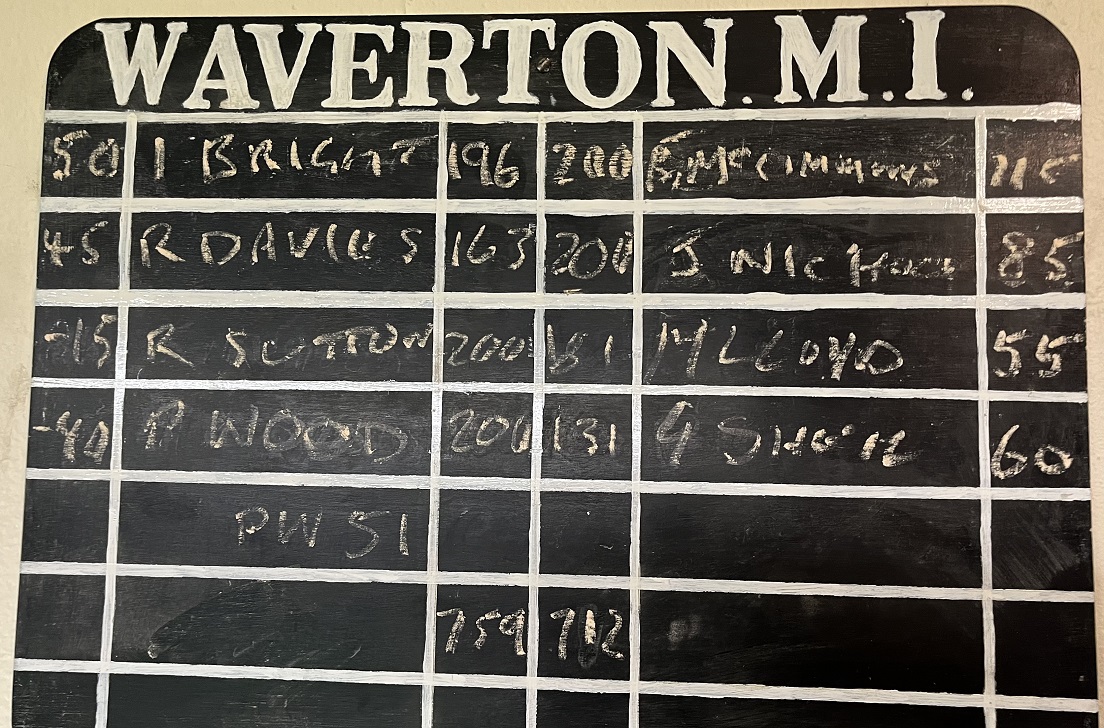 WAVERTON. M.I.
50 I BRIGHT 196 200 E. McCIMMONS
45 R DAVIES 163 200 J NICHOLL 85
-15 R SUTTON 200 181 M LLOYD 55
-40 P WOOD 200 131 G 60
PW 51
759 712